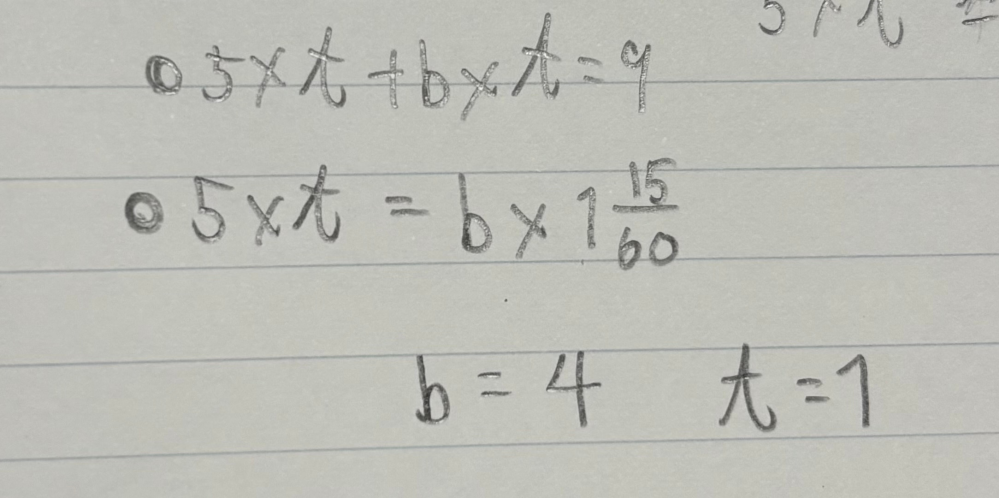 5 × t =
○ 5 × t + b × t = 9
○ 5 × t = b × 1 15/60
b = 4 t = 1